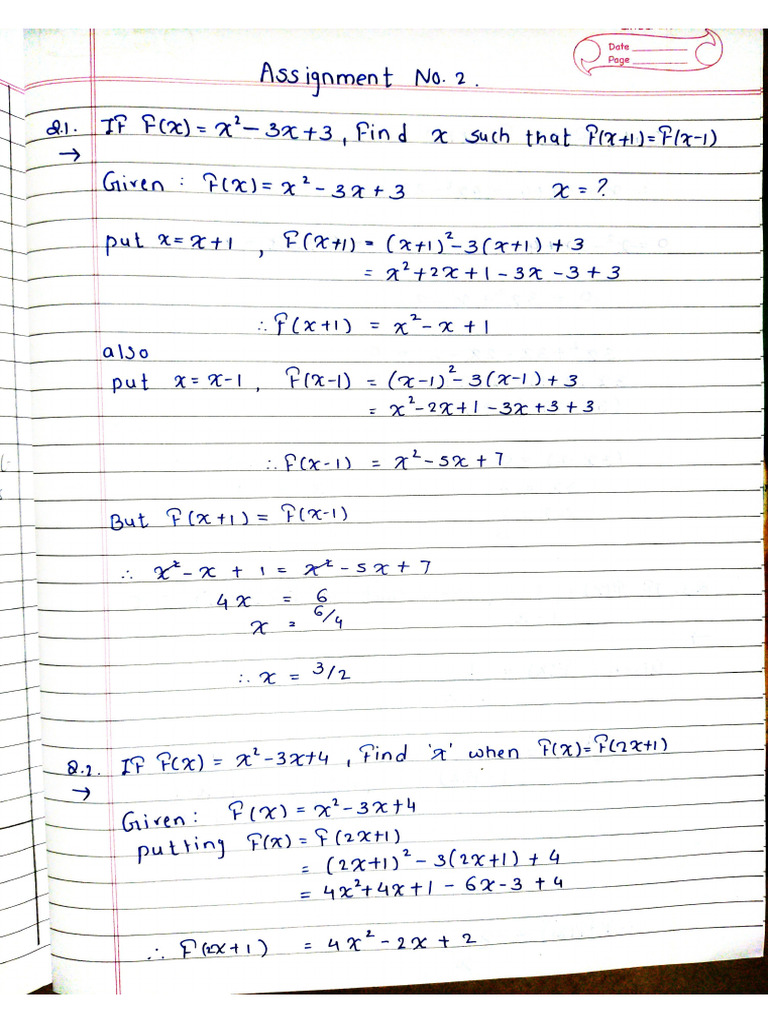 Date
Page
Assignment No. 2.
Q.1. If f(x) = x² - 3x + 3, find x such that f(x+1) = f(x-1)
→
Given : f(x) = x² - 3x + 3 x = ?
put x = x+1 , f(x+1) = (x+1)² - 3(x+1) + 3
= x² + 2x + 1 - 3x - 3 + 3
∴ f(x+1) = x² - x + 1
also
put x = x-1 , f(x-1) = (x-1)² - 3(x-1) + 3
= x² - 2x + 1 - 3x + 3 + 3
∴ f(x-1) = x² - 5x + 7
But f(x+1) = f(x-1)
∴ x² - x + 1 = x² - 5x + 7
4x = 6
x = 6/4
∴ x = 3/2
Q.2. If f(x) = x² - 3x + 4 , find 'x' when f(x) = f(2x+1)
→
Given : f(x) = x² - 3x + 4
putting f(x) = f(2x+1)
= (2x+1)² - 3(2x+1) + 4
= 4x² + 4x + 1 - 6x - 3 + 4
∴ f(2x+1) = 4x² - 2x + 2